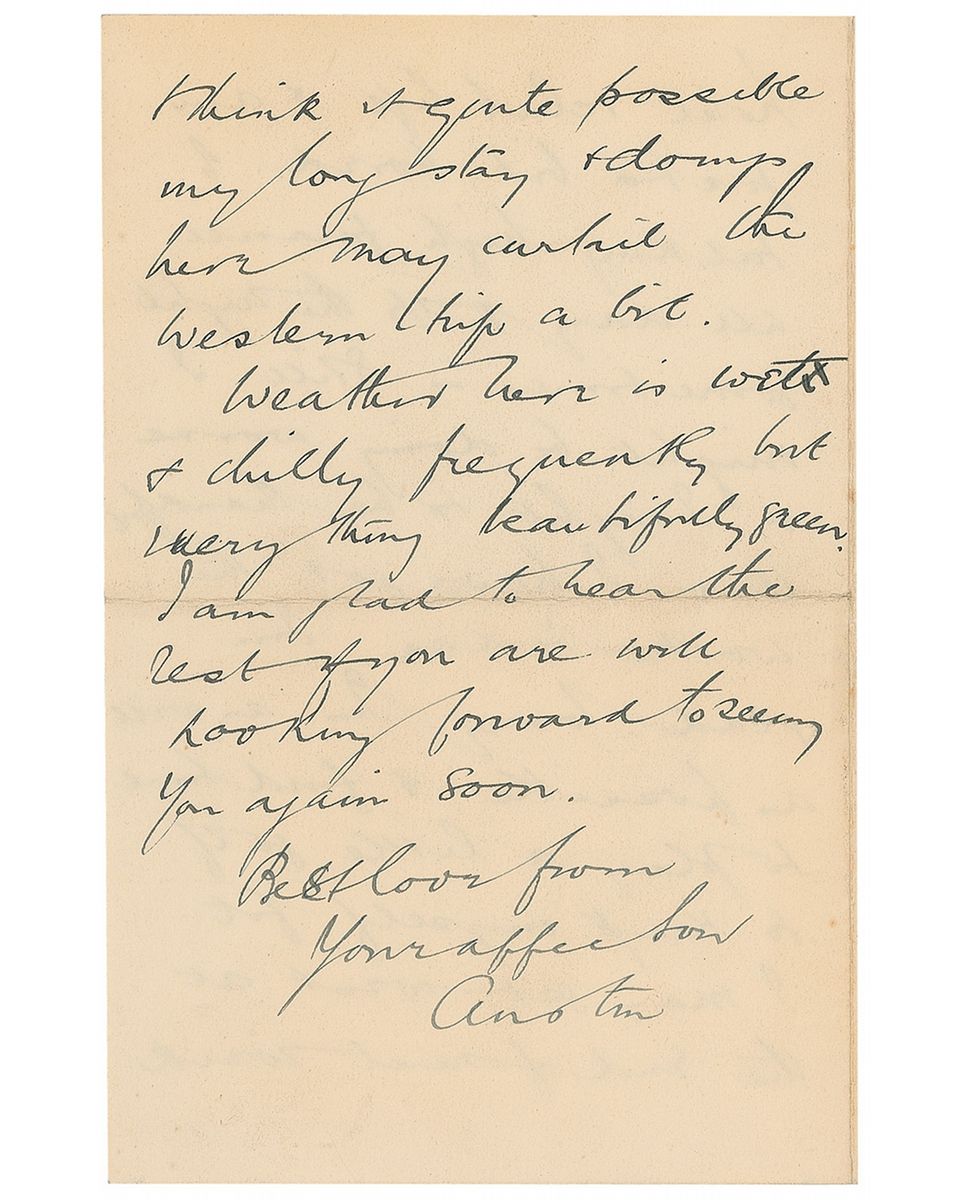 think it quite possible
my long stay & doings
here may curtail the
western trip a bit.
Weather here is wet
& chilly frequently but
everything beautifully green.
I am glad to hear the
rest of you are well
Looking forward to seeing
you again soon.
Best love from
Your affec son
Austin